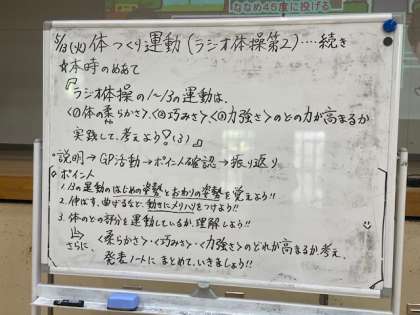 ななめ45度に投げる
5/13(火) 体つくり運動(ラジオ体操第2)‥‥続き
☆本時のめあて
『ラジオ体操の1〜13の運動は、
〈①体の柔らかさ〉・〈②巧みさ〉・〈③力強さ〉のどの力が高まるか
実践して、考えよう!(3)』
・説明→GP活動→ポイント確認→振り返り
ポイント
1. 13の運動のはじめの姿勢とおわりの姿勢を覚えよう!!
2. 伸ばす、曲げるなど、動きにメリハリをつけよう!!
3. 体のどの部分を運動しているか、理解しよう!!
さらに、〈柔らかさ〉・〈巧みさ〉・〈力強さ〉のどれが高まるか考え、
発表ノートにまとめて、いきましょう!!